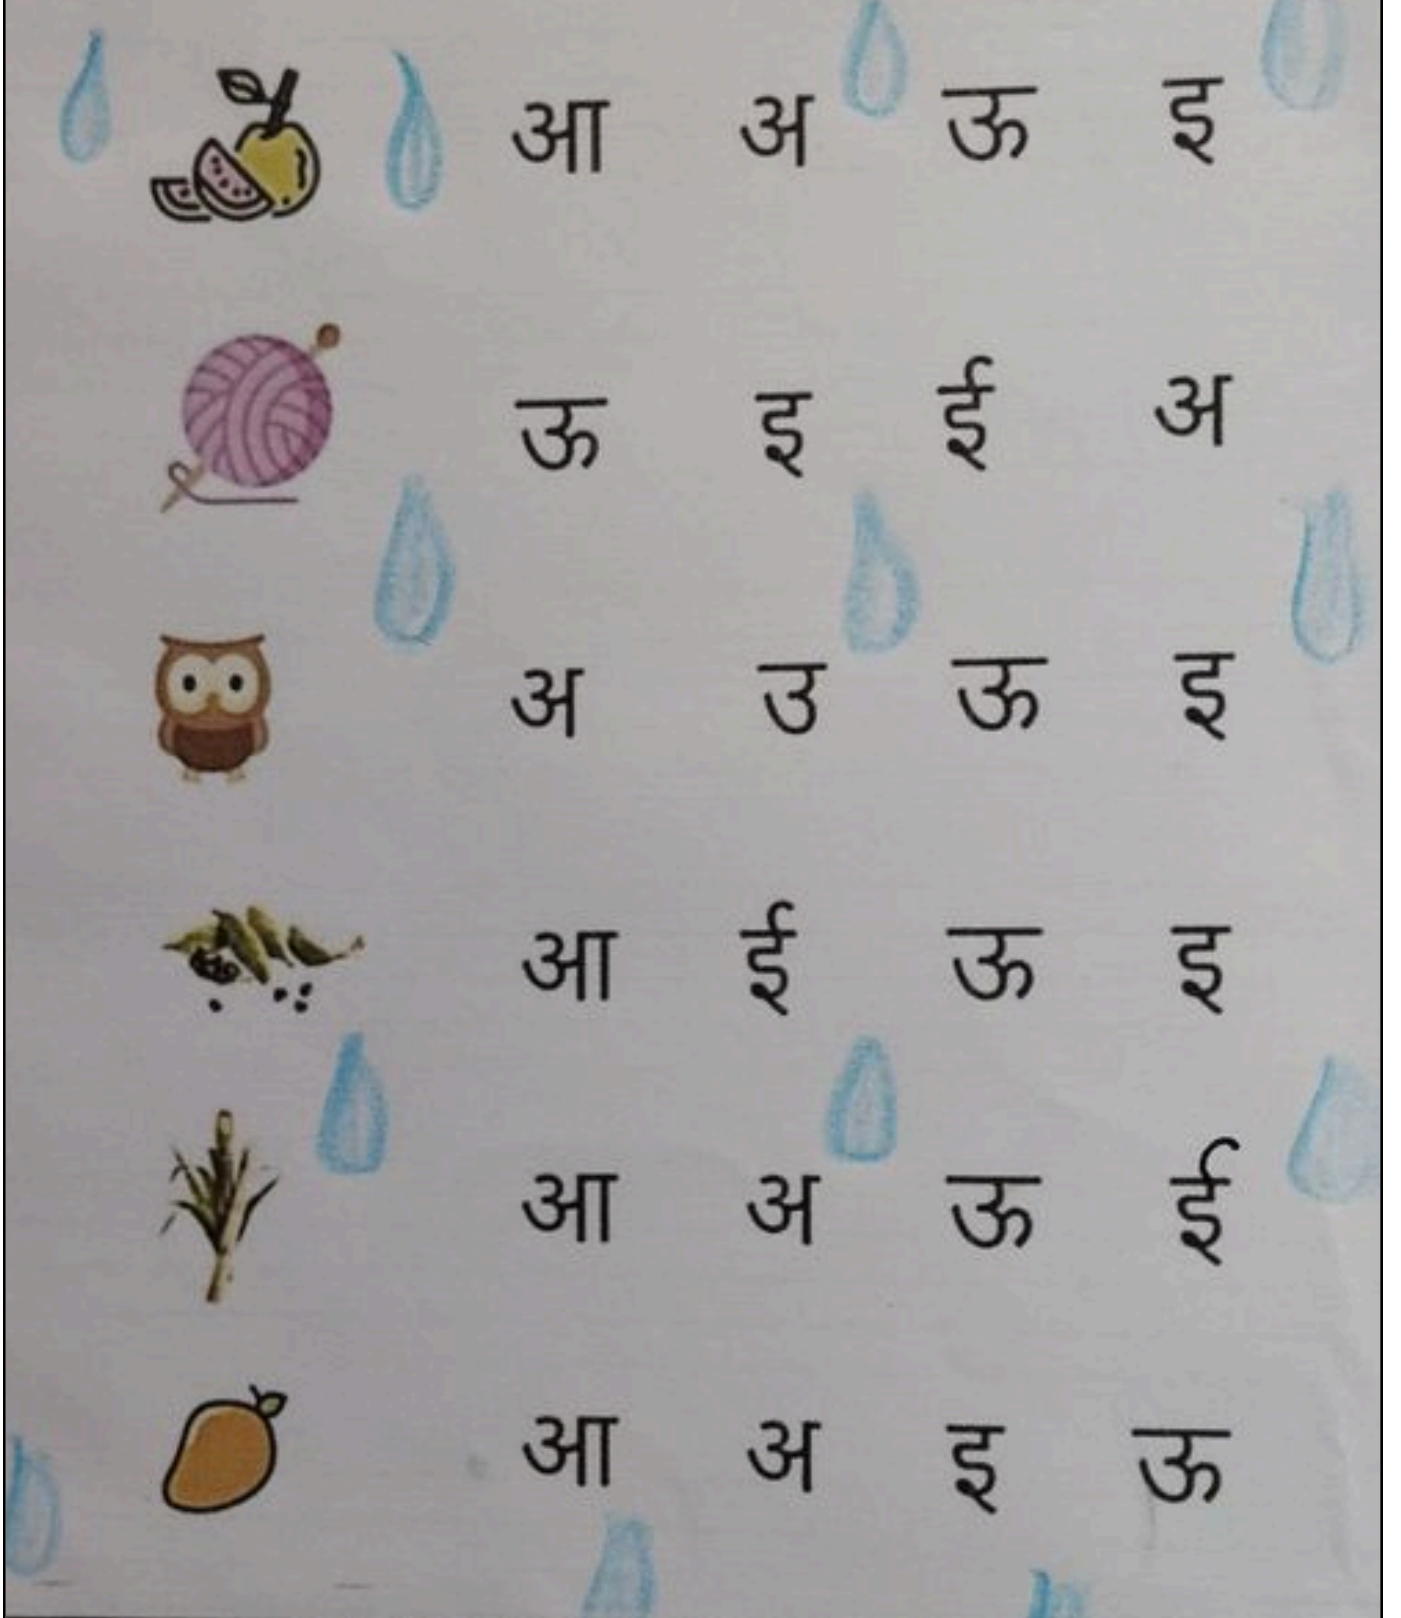 आ अ ऊ इ
ऊ इ ई अ
अ उ ऊ इ
आ ई ऊ इ
आ अ ऊ ई
आ अ इ ऊ